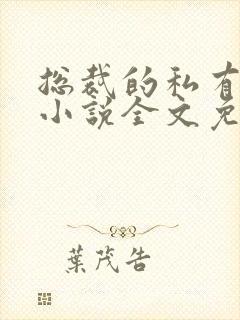 总裁的私有
小说全文免
葉茂告